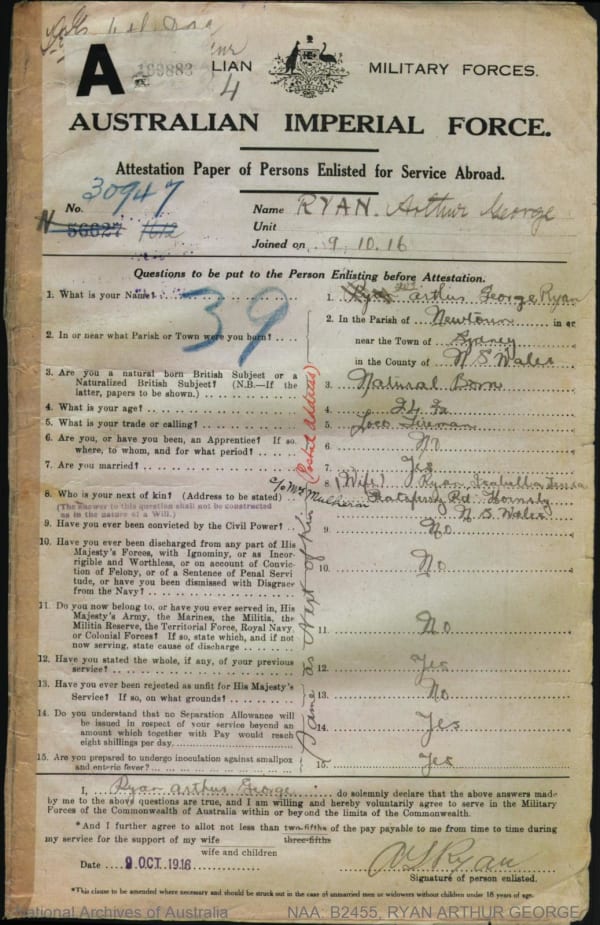 A
169883
LIAN
MILITARY FORCES.
4
AUSTRALIAN IMPERIAL FORCE.
Attestation Paper of Persons Enlisted for Service Abroad.
30947
No. 56627
Name RYAN. Arthur George
Unit
Joined on 9.10.16
Questions to be put to the Person Enlisting before Attestation.
39
1. What is your Name?
1. Ryan Arthur George Ryan
2. In or near what Parish or Town were you born?
2. In the Parish of Newtown in or
near the Town of Sydney
in the County of N.S. Wales
3. Are you a natural born British Subject or a
Naturalized British Subject? (N.B.—If the
latter, papers to be shown.)
3. Natural Born
4. What is your age?
4. 24
5. What is your trade or calling?
5. Loco Fireman
6. Are you, or have you been, an Apprentice? If so,
where, to whom, and for what period?
6. No
7. Are you married?
7. Yes
8. Who is your next of kin? (Address to be stated)
(The answer to this question shall not be constructed
as in the nature of a Will.)
c/o Mrs Mulheron
8. (Wife) Ryan Isabella
Rd. Hornsby
N.S. Wales
(Postal address)
Same as Next of Kin
9. Have you ever been convicted by the Civil Power?
9. No
10. Have you ever been discharged from any part of His
Majesty's Forces, with Ignominy, or as Incor-
rigible and Worthless, or on account of Convic-
tion of Felony, or of a Sentence of Penal Servi
tude, or have you been dismissed with Disgrace
from the Navy?
10. No
11. Do you now belong to, or have you ever served in, His
Majesty's Army, the Marines, the Militia, the
Militia Reserve, the Territorial Force, Royal Navy,
or Colonial Forces? If so, state which, and if not
now serving, state cause of discharge
11. No
12. Have you stated the whole, if any, of your previous
service?
12. Yes
13. Have you ever been rejected as unfit for His Majesty's
Service? If so, on what grounds?
13. No
14. Do you understand that no Separation Allowance will
be issued in respect of your service beyond an
amount which together with Pay would reach
eight shillings per day.
14. Yes
15. Are you prepared to undergo inoculation against smallpox
and enteric fever?
15. Yes
I, Ryan Arthur George do solemnly declare that the above answers made
by me to the above questions are true, and I am willing and hereby voluntarily agree to serve in the Military
Forces of the Commonwealth of Australia within or beyond the limits of the Commonwealth.
*And I further agree to allot not less than two-fifths of the pay payable to me from time to time during
three-fifths
my service for the support of my wife
wife and children
Date 9 OCT 1916
A G Ryan
Signature of person enlisted.
*This clause to be amended where necessary and should be struck out in the case of unmarried men or widowers without children under 18 years of age.
National Archives of Australia
NAA: B2455, RYAN ARTHUR GEORGE